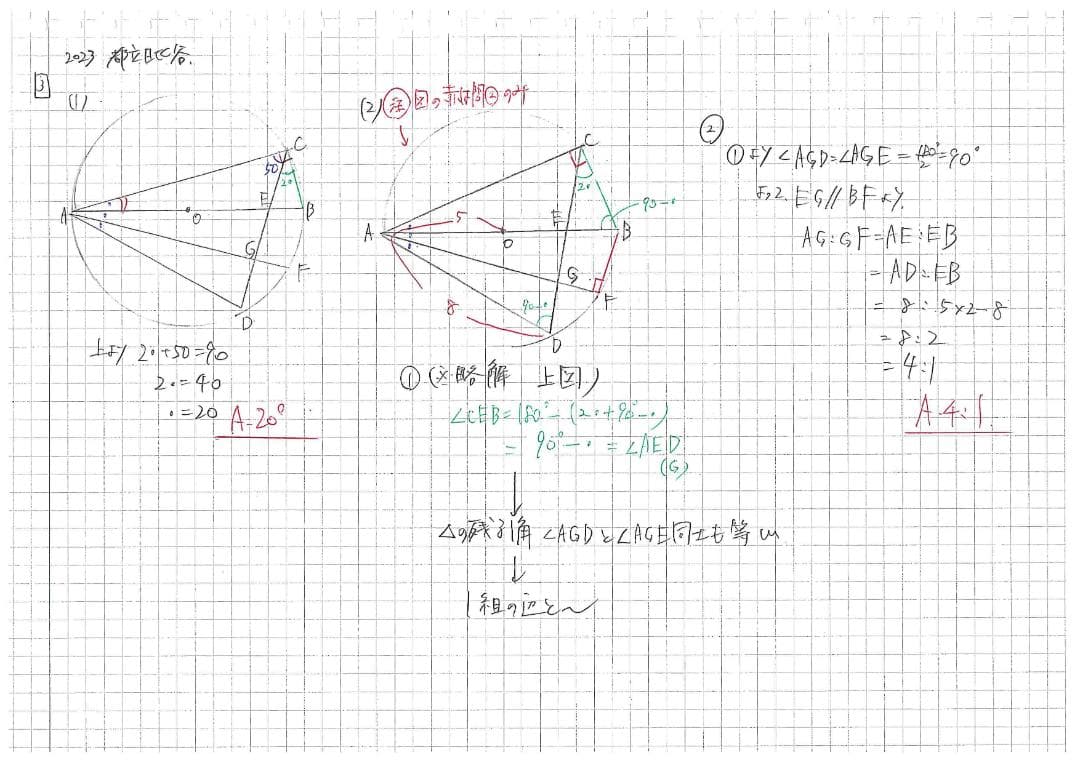 2023 都立日比谷.
3
(1)
C
50
2•
A
O
E
B
G
F
D
上より 2•+50=90
2•=40
•=20
A-20°
(2) 注 図の赤は問②のみ
C
2•
90-•
5
E
A
O
B
G
F
8
90-•
D
① (※略解 上図)
∠CEB=180°-(2•+90°-•)
= 90°-• = ∠AED
(G)
△の残り1角 ∠AGDと∠AGE同士も等しい
1組の辺と〜
②
①より∠AGD=∠AGE=180°/2=90°
よって EG//BFより.
AG:GF=AE:EB
=AD:EB
=8:5×2-8
=8:2
=4:1
A-4:1.